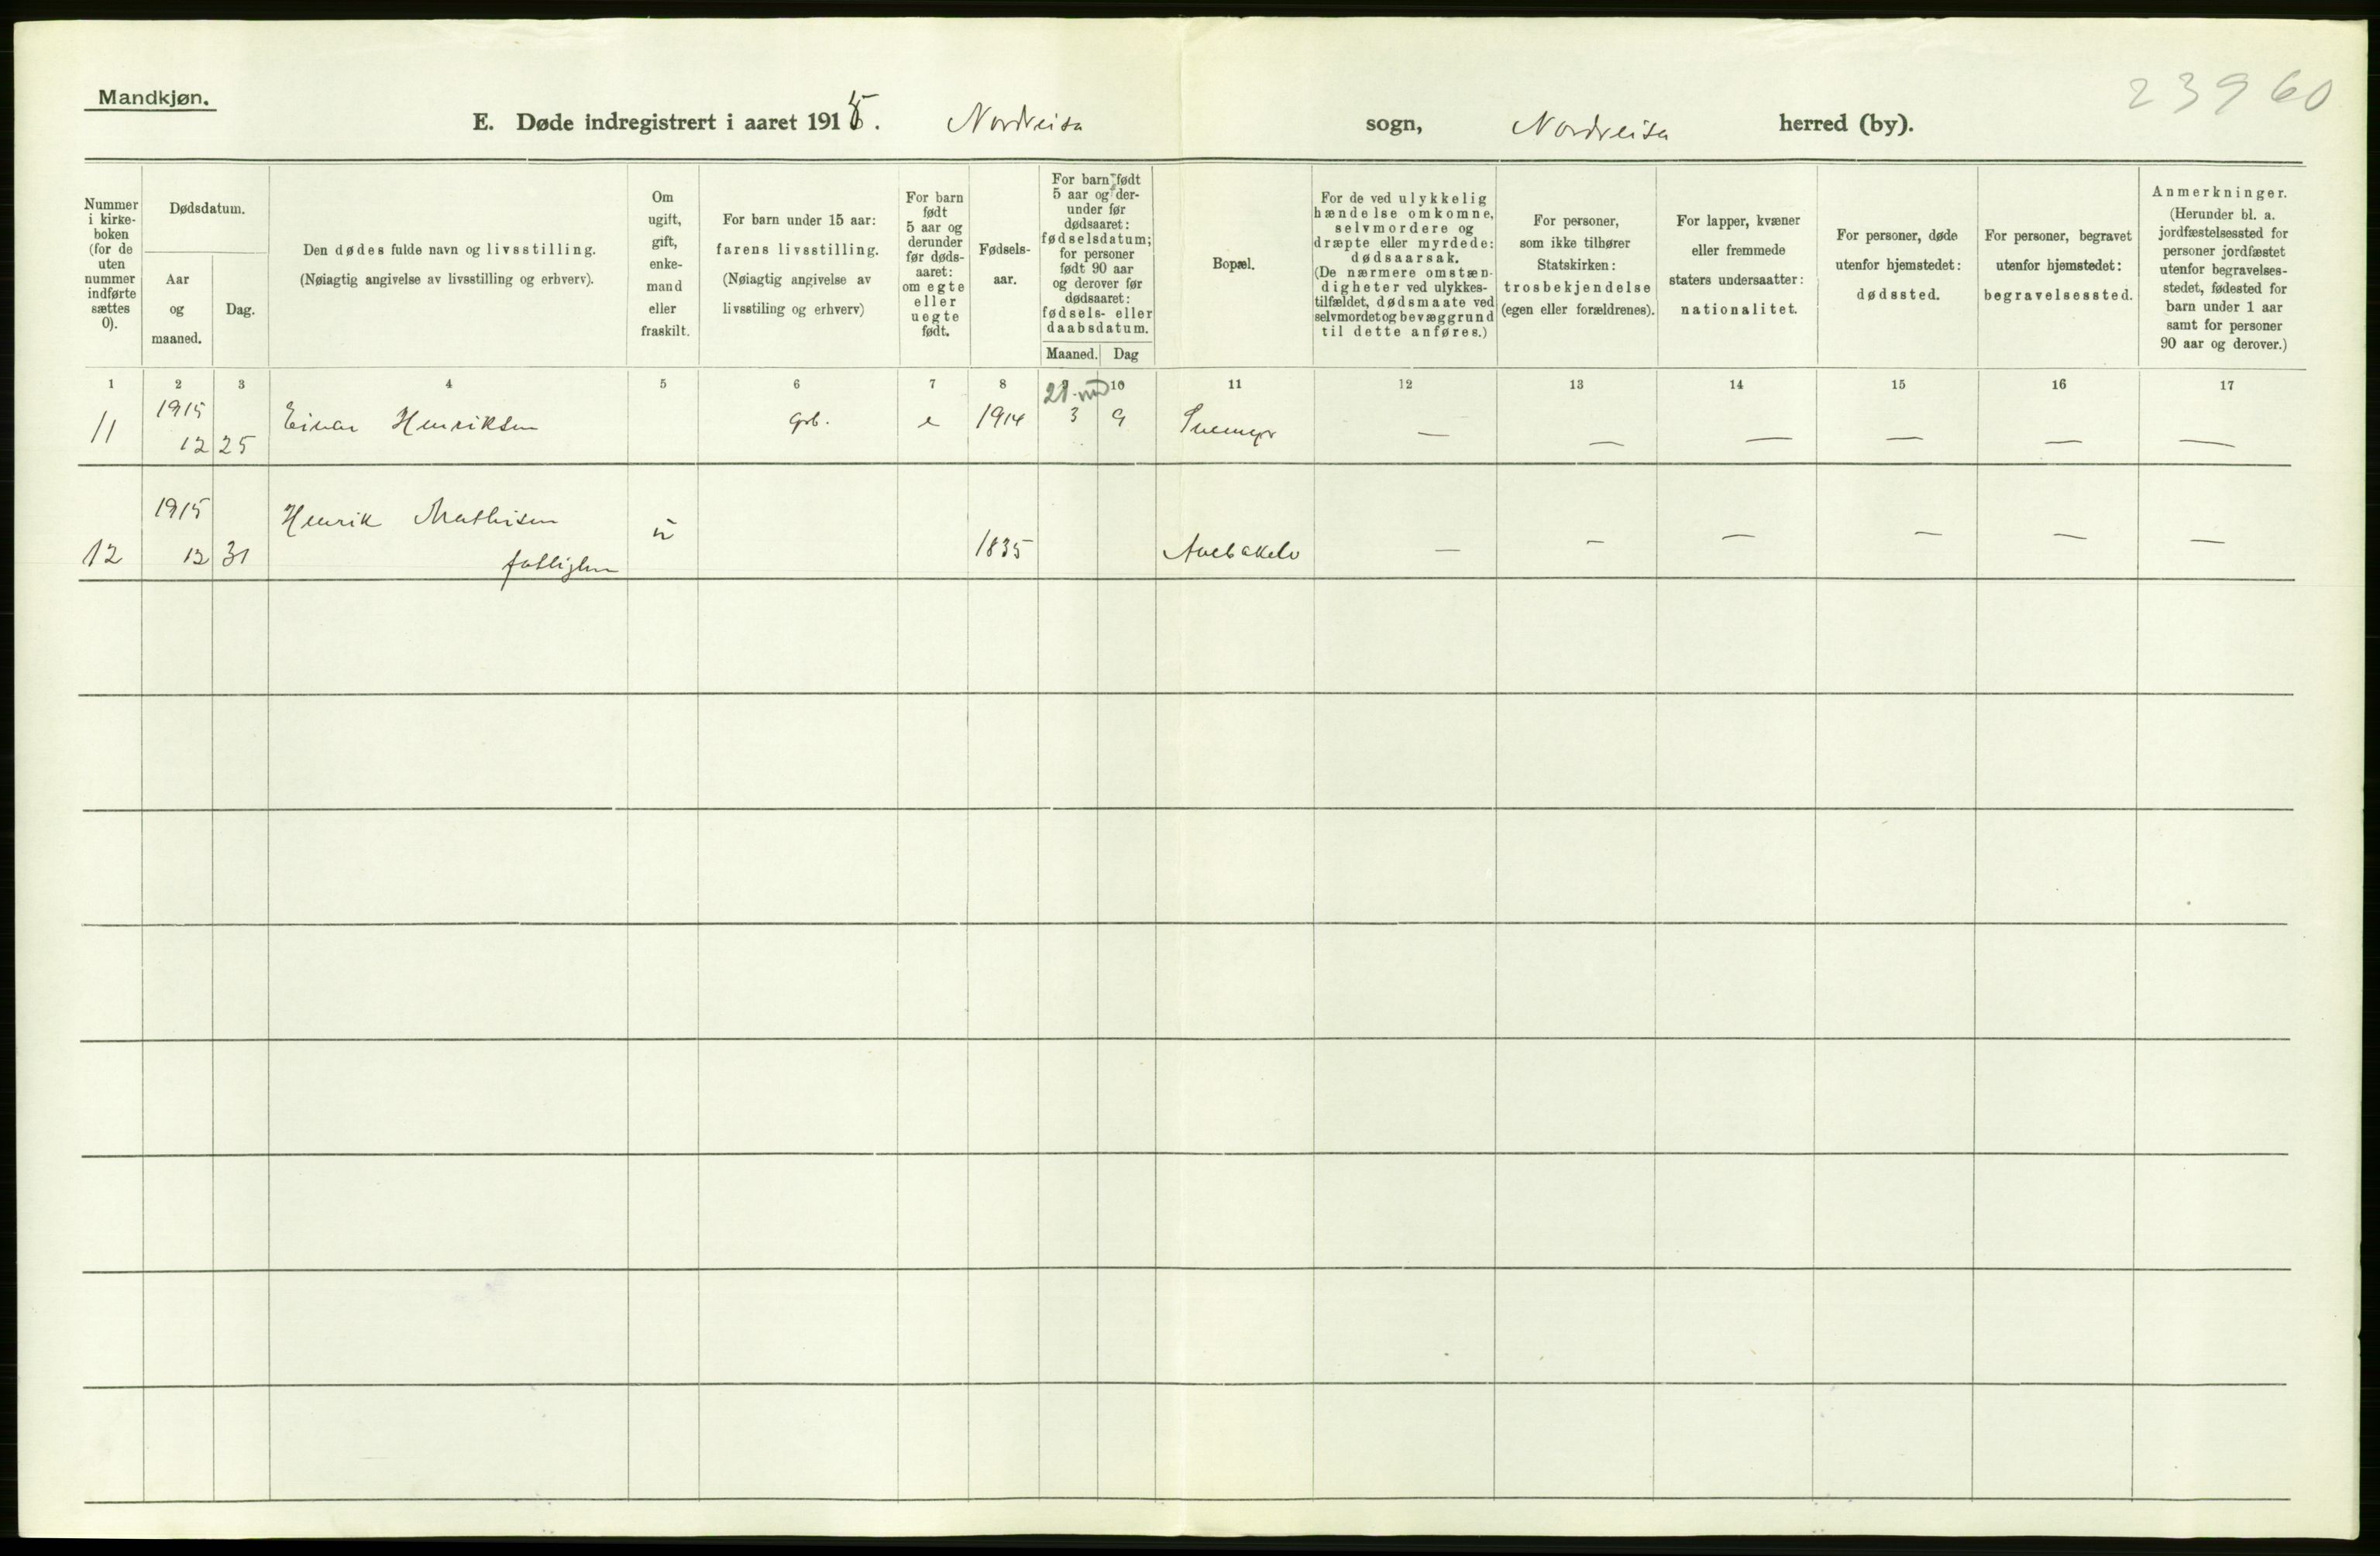 Mandkjøn.
23960
E. Døde indregistrert i aaret 1915. Nordreisa sogn, Nordreisa herred (by).
Nummer i kirke- boken (for de uten nummer indførte sættes 0).
Dødsdatum.
Aar og maaned.
Dag.
Den dødes fulde navn og livsstilling.
(Nøiagtig angivelse av livsstilling og erhverv).
Om ugift, gift, enke- mand eller fraskilt.
For barn under 15 aar:
farens livsstilling.
(Nøiagtig angivelse av
livsstiling og erhverv)
For barn født 5 aar og derunder før døds- aaret: om egte eller uegte født.
Fødsels- aar.
For barn født 5 aar og der- under før dødsaaret: fødselsdatum; for personer født 90 aar og derover før dødsaaret: fødsels- eller daabsdatum.
Maaned. Dag
Bopæl.
For de ved ulykkelig hændelse omkomne, selvmordere og dræpte eller myrdede: dødsaarsak. (De nærmere omstæn- digheter ved ulykkes- tilfældet, dødsmaate ved selvmordet og bevæggrund til dette anføres.)
For personer, som ikke tilhører Statskirken: trosbekjendelse (egen eller forældrenes).
For lapper, kvæner eller fremmede staters undersaatter: nationalitet.
For personer, døde utenfor hjemstedet: dødssted.
For personer, begravet utenfor hjemstedet: begravelsessted.
Anmerkninger.
(Herunder bl. a. jordfæstelsessted for personer jordfæstet utenfor begravelses- stedet, fødested for barn under 1 aar samt for personer 90 aar og derover.)
1 2 3 4 5 6 7 8 10 11 12 13 14 15 16 17
21. md
11 1915 12 25 Einar Henriksen Grb. e 1914 3 9 Snemyr — — — — — —
12 1915 12 31 Henrik Mathisen u 1835 — — — — — —
fattiglem